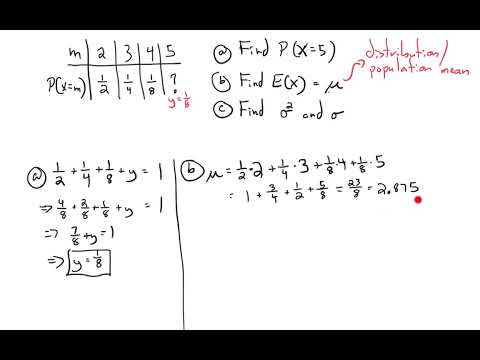 m | 2 | 3 | 4 | 5
P(X=m) | 1/2 | 1/4 | 1/8 | ?
y=1/8
ⓐ Find P(X=5)
ⓑ Find E(X) = μ
ⓒ Find σ² and σ
distribution/
population mean
ⓐ 1/2 + 1/4 + 1/8 + y = 1
⇒ 4/8 + 2/8 + 1/8 + y = 1
⇒ 7/8 + y = 1
⇒ y = 1/8
ⓑ μ = 1/2 · 2 + 1/4 · 3 + 1/8 · 4 + 1/8 · 5
= 1 + 3/4 + 1/2 + 5/8 = 23/8 = 2.875